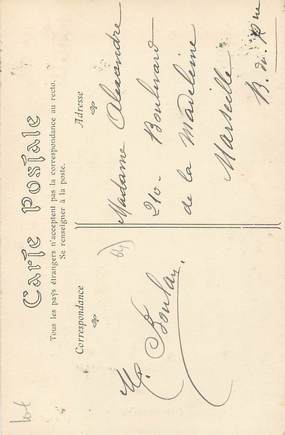 Carte Postale
Tous les pays étrangers n'acceptent pas la correspondance au recto.
Se renseigner à la poste.
Correspondance
Adresse
M. Boulan
Madame Alexandre
210 - Boulevard
de la Madeleine
Marseille
B. du Rne
lot